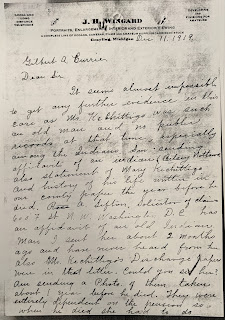 J. H. WINGARD
PORTRAITS, ENLARGEMENTS, INTERIOR AND EXTERIOR VIEWING
Honor, Michigan Dec 11, 1912
Gilbert A. Currier
Dear Sir
It seems almost impossible
to get any further evidence in this
case as Mr. Keshittigo was such
an old man and no public
records at that time especially
among the Indians. Am sending
affidavits of an indian
also statement of Mary Keshittigo
and history of his life written in
our county paper the year before he
died. Lipton, Solicitor of claims
600 F St. N.W. Washington D.C. has
an affidavit of an old Indian
Man I sent her about 3 months
ago and have never heard from her
also Mr. Keshittigo's Discharge papers
were in that letter. Could you see her?
Am sending a Photo of them taken
about 1 year before he died. They were
entirely dependent on the pension so
when he died she had to do